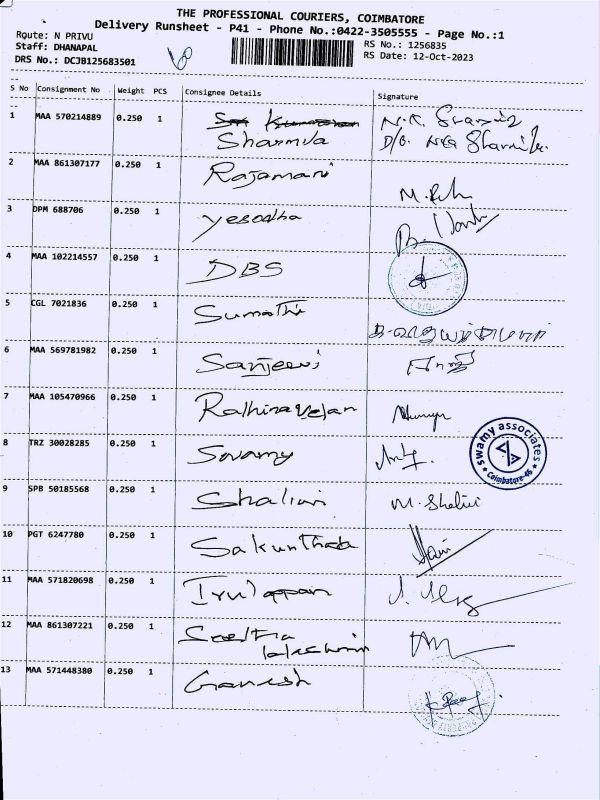 THE PROFESSIONAL COURIERS, COIMBATORE
Delivery Runsheet - P41 - Phone No.:0422-3505555 - Page No.:1
Route: N PRIVU RS No.: 1256835
Staff: DHANAPAL RS Date: 12-Oct-2023
DRS No.: DCJB125683501
S No Consignment No Weight PCS Consignee Details Signature
1 MAA 570214889 0.250 1 Sharmila
2 MAA 861307177 0.250 1 Rajamani
3 DPM 688706 0.250 1 Yesodha
4 MAA 102214557 0.250 1 DBS
5 CGL 7021836 0.250 1 Sumathi
6 MAA 569781982 0.250 1 Sanjeevi
7 MAA 105470966 0.250 1 Rathinavelan
8 TRZ 30028285 0.250 1 Swamy
swamy associates
Coimbatore-45
9 SPB 50185568 0.250 1 Shalini M. Shalini
10 PGT 6247780 0.250 1 Sakunthala
11 MAA 571820698 0.250 1 Irulappan
12 MAA 861307221 0.250 1 Seetha
lakshmi
13 MAA 571448380 0.250 1 Ganesh